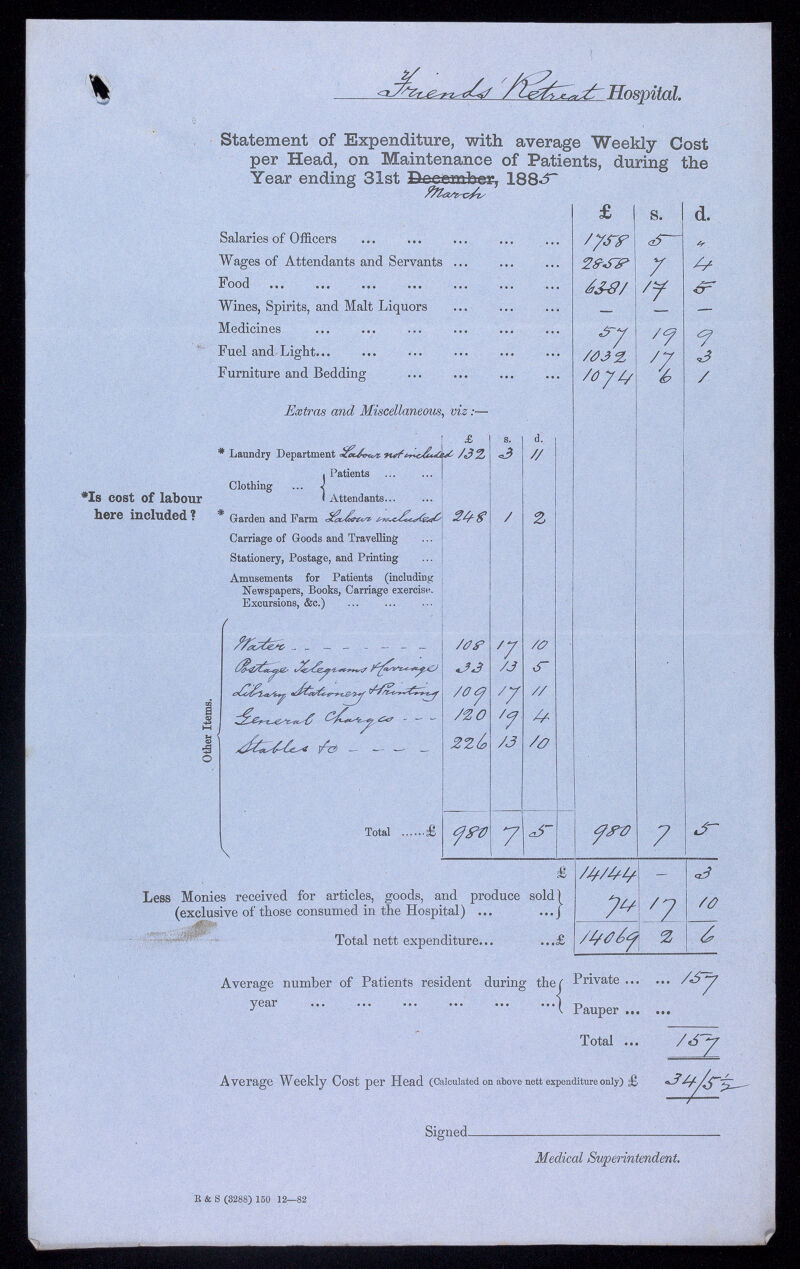 Friends' Retreat Hospital.
Statement of Expenditure, with average Weekly Cost
per Head, on Maintenance of Patients, during the
Year ending 31st December, 1885
March
£ s. d.
Salaries of Officers ... ... ... ... ... 1758 5 "
Wages of Attendants and Servants ... ... ... 2858 7 4
Food ... ... ... ... ... ... ... 6381 17 5
Wines, Spirits, and Malt Liquors ... ... ... — — —
Medicines ... ... ... ... ... ... 57 19 9
Fuel and Light... ... ... ... ... ... 1032 17 3
Furniture and Bedding ... ... ... ... 1074 6 1
Extras and Miscellaneous, viz :—
£ s. d.
* Laundry Department Labour not included 132 3 11
Clothing ... { Patients ... ...
Attendants... ...
*Is cost of labour
here included ?
* Garden and Farm Labour included 248 1 2
Carriage of Goods and Travelling ...
Stationery, Postage, and Printing ...
Amusements for Patients (including
Newspapers, Books, Carriage exercise.
Excursions, &c.) ... ... ...
Other Items.
Water - - - - - - - 108 17 10
Postage Telegrams & Carriage 33 13 5
Library Stationery & Printing 109 17 11
General Charges - - - 120 19 4
Stables &c - - - - 226 13 10
Total ......£ 980 7 5 980 7 5
£ 14144 - 3
Less Monies received for articles, goods, and produce sold }
(exclusive of those consumed in the Hospital) ... ... } 74 17 10
Total nett expenditure... ...£ 14069 2 6
Average number of Patients resident during the { Private ... ... 157
year ... ... ... ... ... ... { Pauper ... ...
Total ... 157
Average Weekly Cost per Head (Calculated on above nett expenditure only) £ 34/5½
Signed
Medical Superintendent.
R & S (3288) 150 12—82